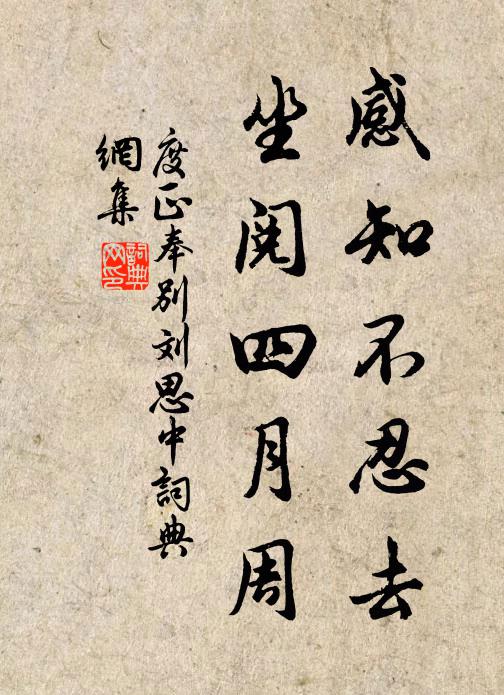 感知不忍去
坐阅四月周
度正奉别刘思中詞典
網集
詞典
网印